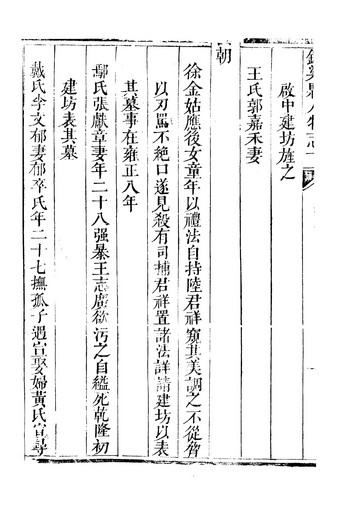 人物志
啟中建坊旌之
王氏郭嘉禾妻
朝
徐金姑應後女童年以禮法自持陸君祥窺其美調之不從脅
以刃罵不絕口遂見殺有司捕君祥置諸法詳請建坊以表
其墓事在雍正八年
鄢氏張獻章妻年二十八强暴王志廣欲污之自縊死乾隆初
建坊表其墓
戴氏李文郁妻郁卒氏年二十七撫孤子遇宣娶婦黃氏宣尋